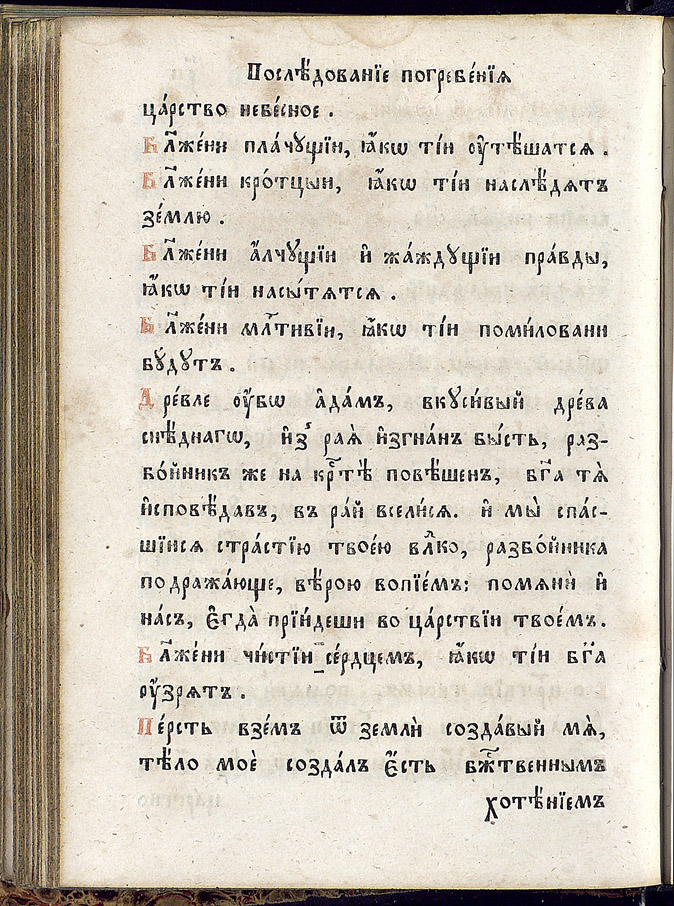 Послѣ́дованїе погребе́нїѧ
ца́рство небе́сное .
Бл҃же́ни пла́чꙋщїи, ꙗ҆́кѡ ті́и ᲂу҆тѣ́шатсѧ .
Бл҃же́ни кро́тцыи, ꙗ҆́кѡ ті́и наслѣ́дѧтъ
зе́млю .
Бл҃же́ни а҆́лчꙋщїи и҆ жа́ждꙋщїи пра́вды,
ꙗ҆́кѡ ті́и насы́тѧтсѧ .
Бл҃же́ни мл҇тивїи, ꙗ҆́кѡ ті́и поми́ловани
бꙋ́дꙋтъ .
Дре́вле ᲂу҆́бѡ а҆да́мъ, вкꙋси́вый дре́ва
снѣ́днагѡ, и҆з̾ раѧ̀ и҆згна́нъ бы́сть, раз-
бо́йникъ же на крⷭ҇тѣ повѣ́шенъ, бг҃а тѧ̀
и҆сповѣ́давъ, въ ра́й всели́сѧ. и҆ мы̀ спа́с-
шїисѧ стра́стїю твое́ю влⷣко, разбо́йника
подража́юще, вѣ́рою вопїе́мъ: помѧнѝ и҆
на́съ, є҆гда̀ прїи́деши во ца́рствїи твое́мъ.
Бл҃же́ни чи́стїи се́рдцемъ, ꙗ҆́кѡ ті́и бг҃а
ᲂу҆́зрѧтъ .
Пе́рсть взе́мъ ѿ землѝ созда́вый мѧ̀,
тѣ́ло моѐ созда́лъ є҆́сть бж҇твеннымъ
хотѣ́нїемъ